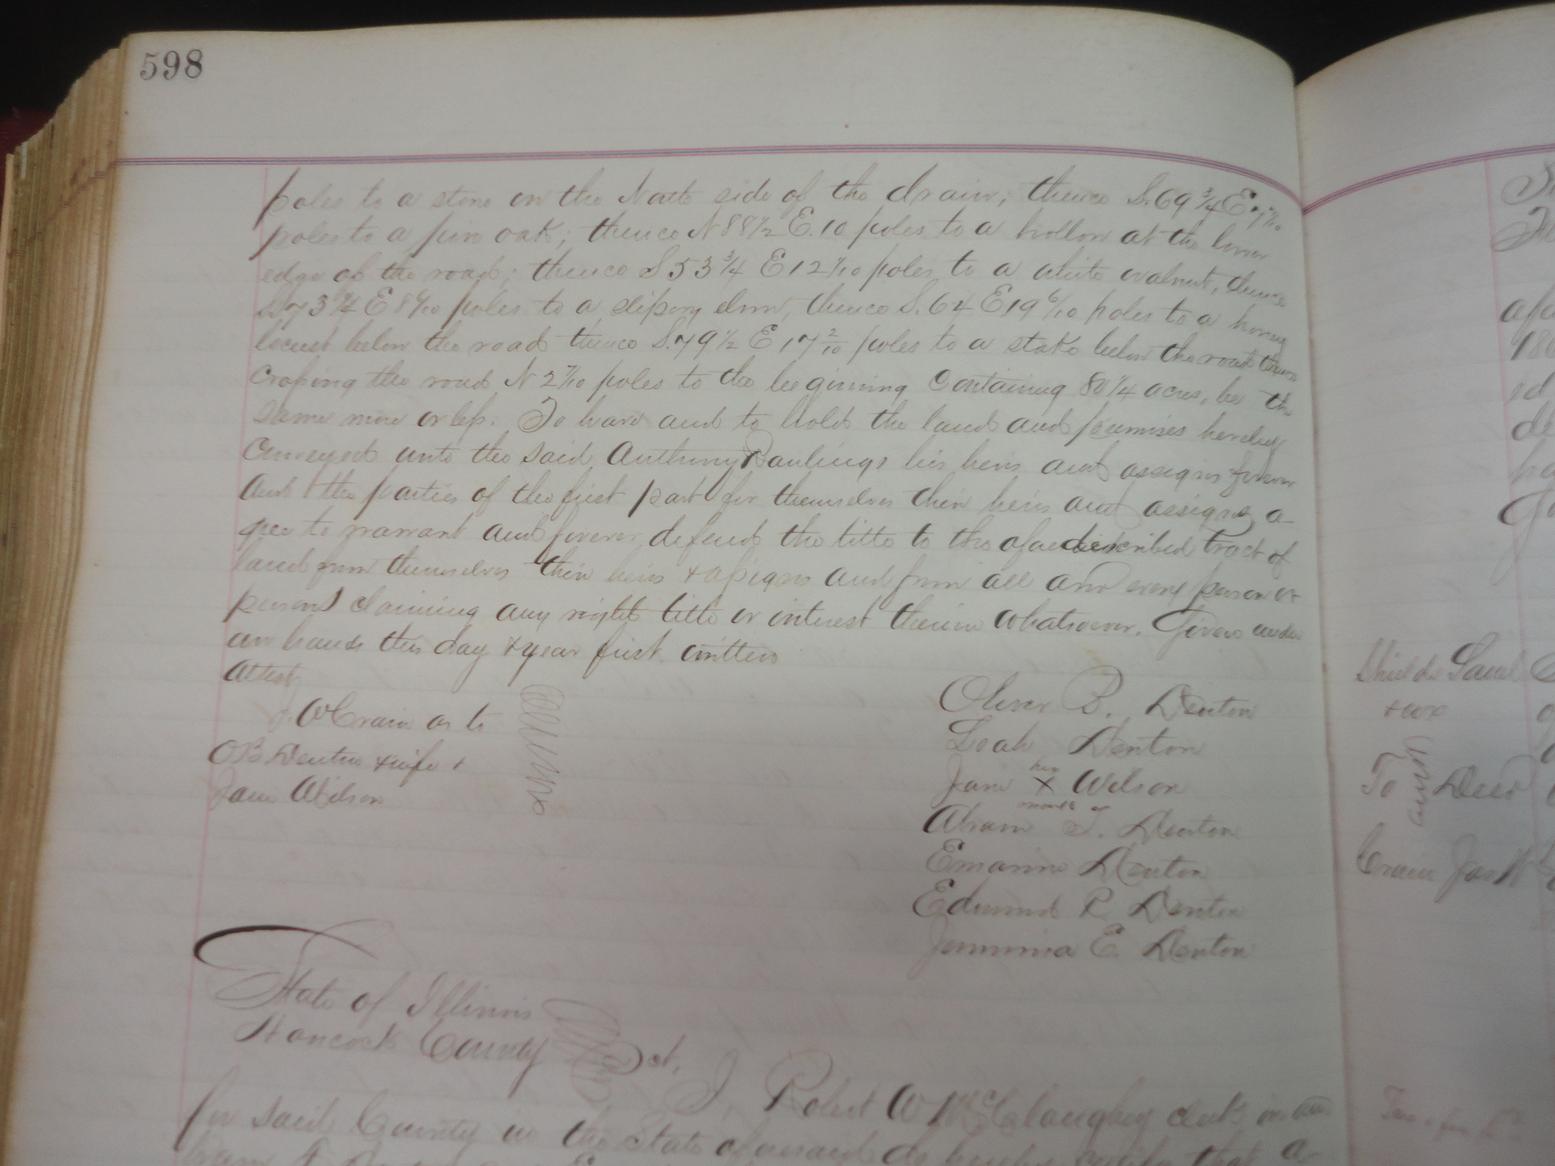 598
poles to a stone on the North side of the drain; thence S. 69 3/4 E 7 7/10
poles to a pin oak; thence N 88 1/2 E. 10 poles to a hollow at the lower
edge of the road; thence S 53 3/4 E 12 7/10 poles to a white walnut, thence
S 73 3/4 E 8 9/10 poles to a slipery elm, thence S. 64 E 19 6/10 poles to a honey
locust below the road thence S. 79 1/2 E 17 2/10 poles to a stake below the road thence
crossing the road N 2 7/10 poles to the beginning Containing 80 1/4 acres, be the
same more or less. To have and to hold the land and premises hereby
conveyed unto the said Anthony Rawlings his heirs and assigns forever
And the parties of the first part for themselves their heirs and assigns a-
gree to warrant and forever defend the title to the aforedescribed tract of
land from themselves their heirs & assigns and from all and every person or
persons claiming any right title or interest therein whatsoever. Given under
our hands this day & year first written
Attest
J. W Crain as to
O B Denton & wife &
Jane Wilson
Oliver B. Denton
Leah Denton
Jane her X mark Wilson
Abram T. Denton
Emarine Denton
Edmund P. Denton
Jemmima E. Denton
State of Illinois
Hancock County Sct,
I, Robert W McClaughry clerk in and
for said County in the State aforesaid do hereby certify that A-
Shields Saml
& wx
To Deed
Crain Jas W